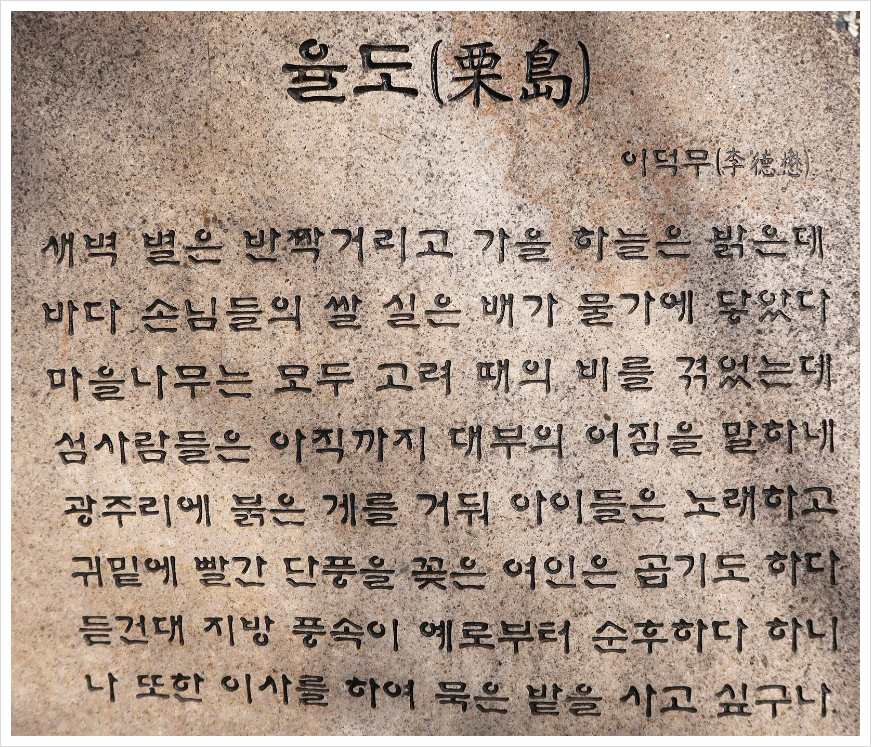 율도(栗島)
이덕무(李德懋)
새벽 별은 반짝거리고 가을 하늘은 밝은데
바다 손님들의 쌀 실은 배가 물가에 닿았다
마을나무는 모두 고려 때의 비를 겪었는데
섬사람들은 아직까지 대부의 어짐을 말하네
광주리에 붉은 게를 거둬 아이들은 노래하고
귀밑에 빨간 단풍을 꽂은 여인은 곱기도 하다
듣건대 지방 풍속이 예로부터 순후하다 하니
나 또한 이사를 하여 묵은 밭을 사고 싶구나.